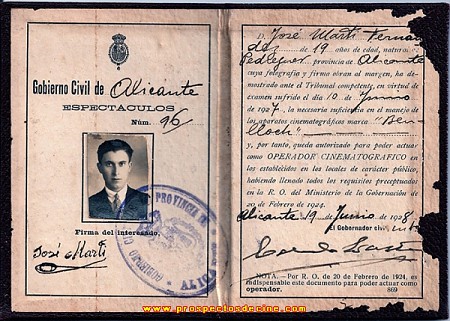 Gobierno Civil de Alicante
ESPECTACULOS
Núm. 96
Firma del interesado,
José Martí
GOBIERNO CIVIL PROVINCIA DE ALICANTE
D. José Martí Fernan
dez de 19 años de edad, natural
Pedreguer, provincia de Alicante
cuya fotografía y firma obran al margen, ha de-
mostrado ante el Tribunal competente, en virtud de
examen sufrido el día 10 de Junio
de 1927, la necesaria suficiencia en el manejo de
los aparatos cinematográficos marca "Ben-
lloch"
y, por tanto, queda autorizado para poder actuar
como OPERADOR CINEMATOGRAFICO en
los establecidos en los locales de carácter público,
habiendo llenado todos los requisitos preceptuados
en la R. O. del Ministerio de la Gobernación de
20 de Febrero de 1924.
Alicante 19 Junio de 1928
El Gobernador civil
NOTA.—Por R. O. de 20 de Febrero de 1924, es
indispensable este documento para poder actuar como
operador. 869
www.prospectosdecine.com